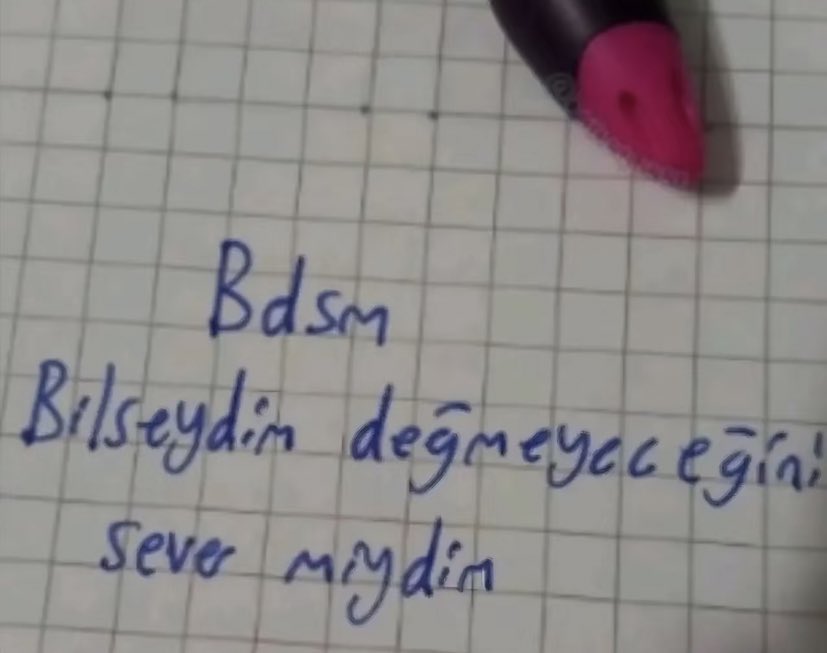 Bdsm
Bilseydin değmeyeceğini
sever miydin